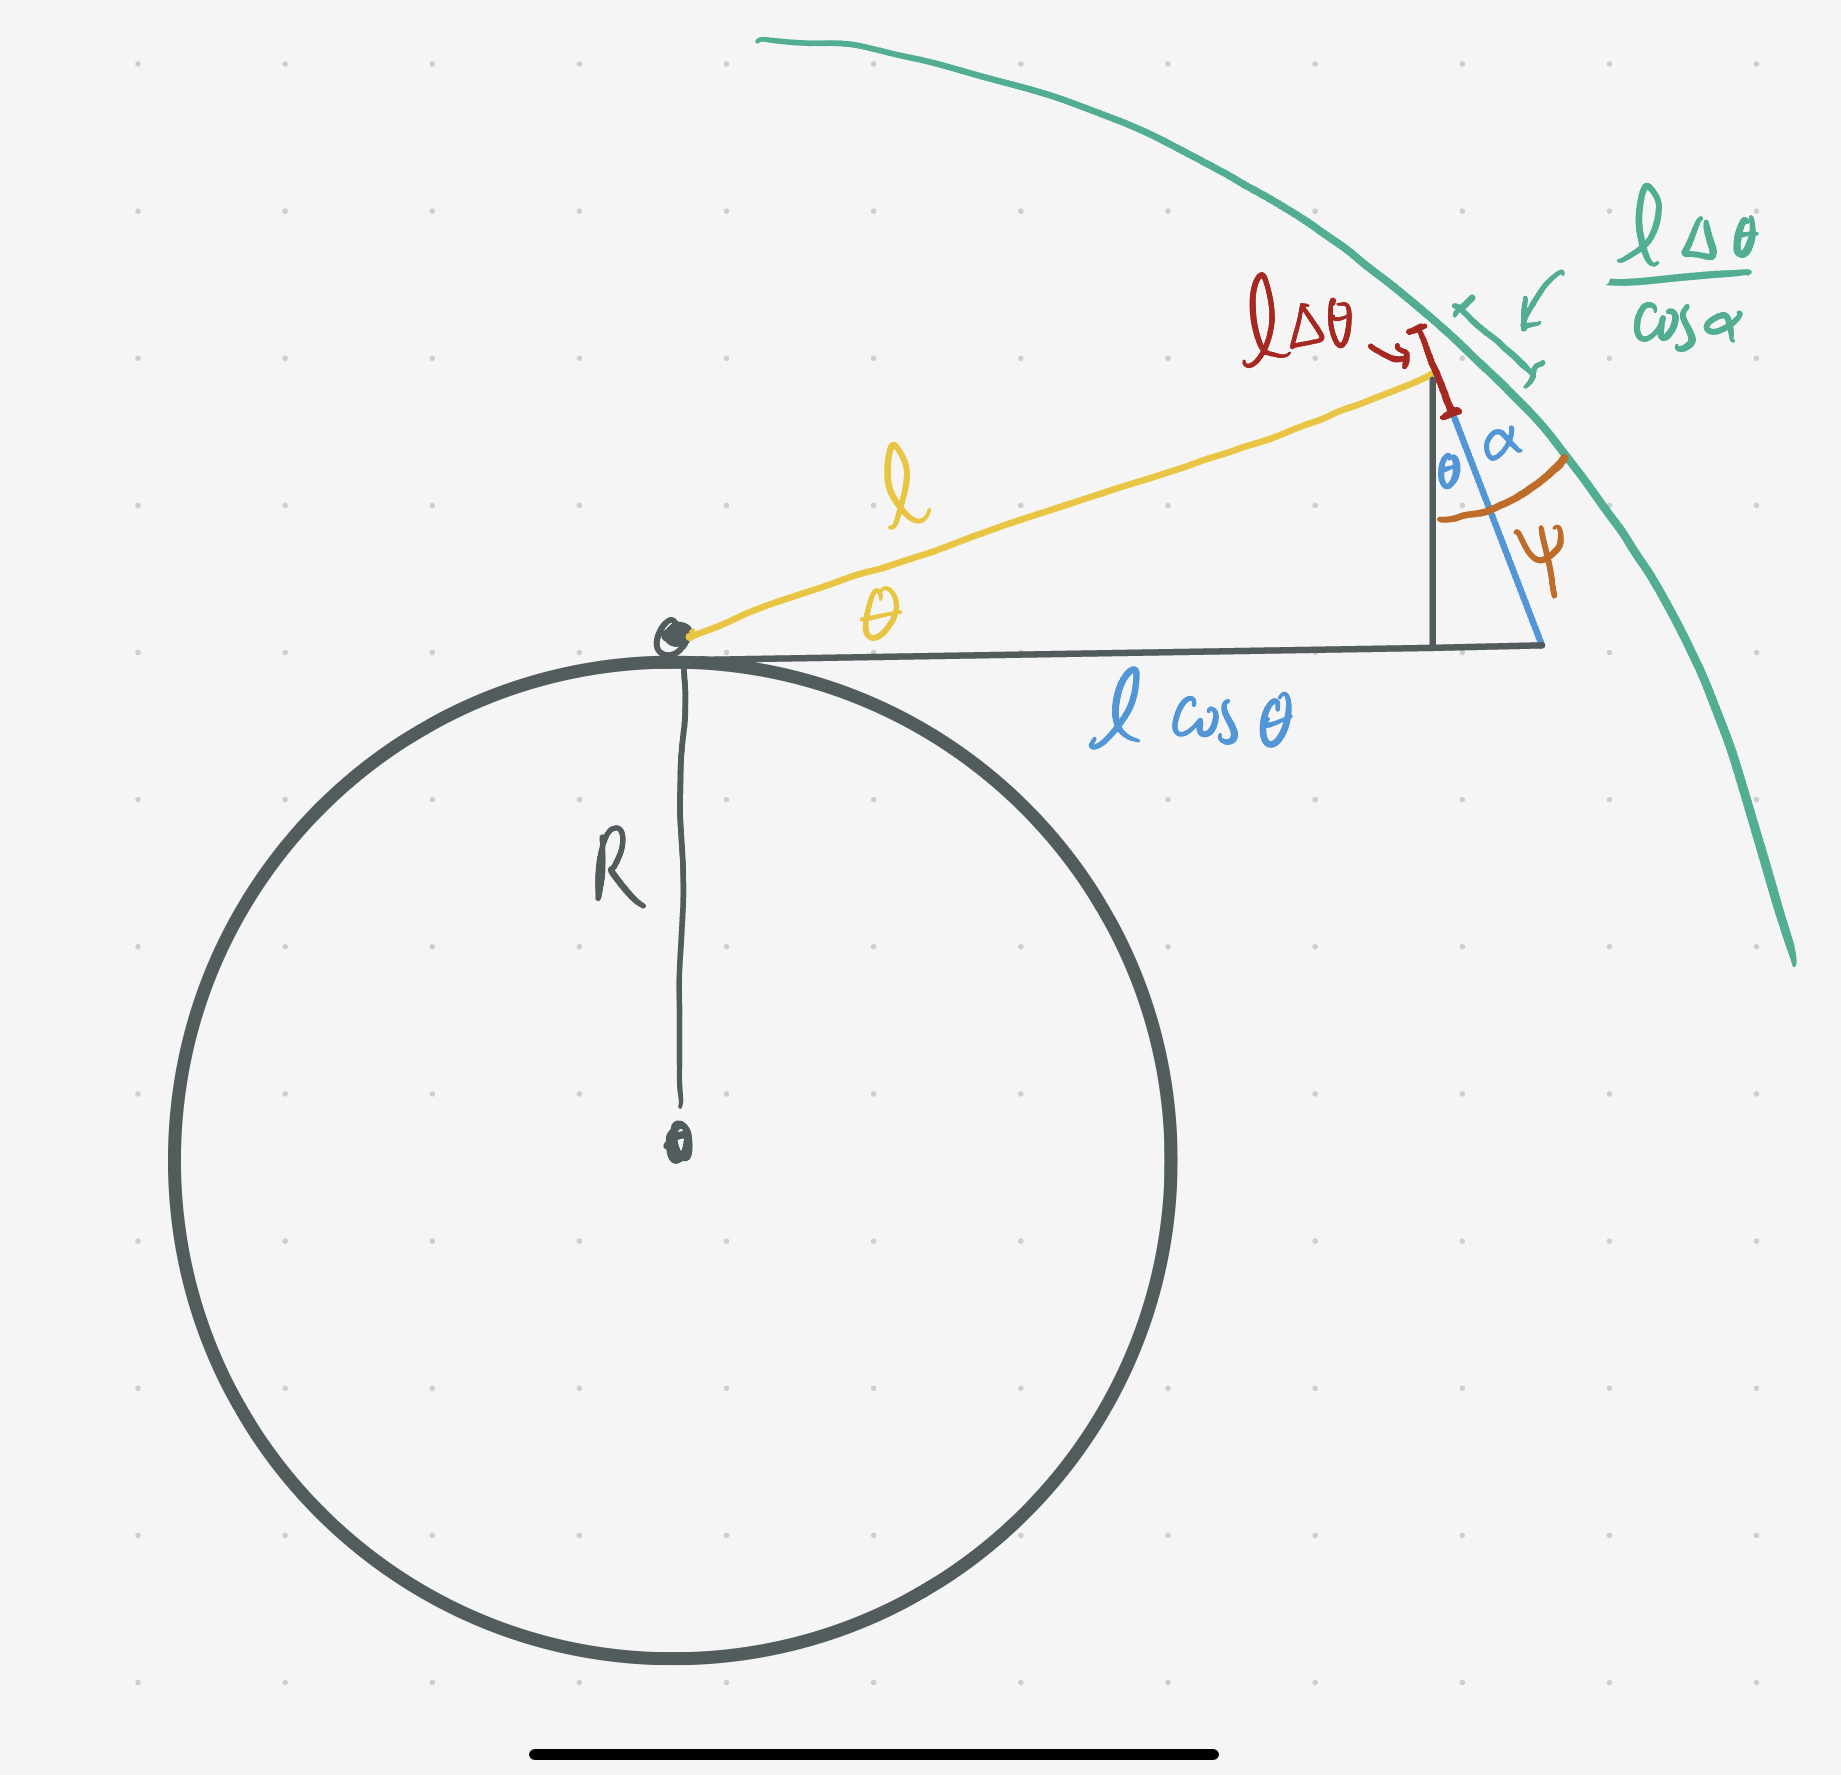 l Δθ
cos α
l Δθ
α
θ
l
ψ
θ
l cos θ
R